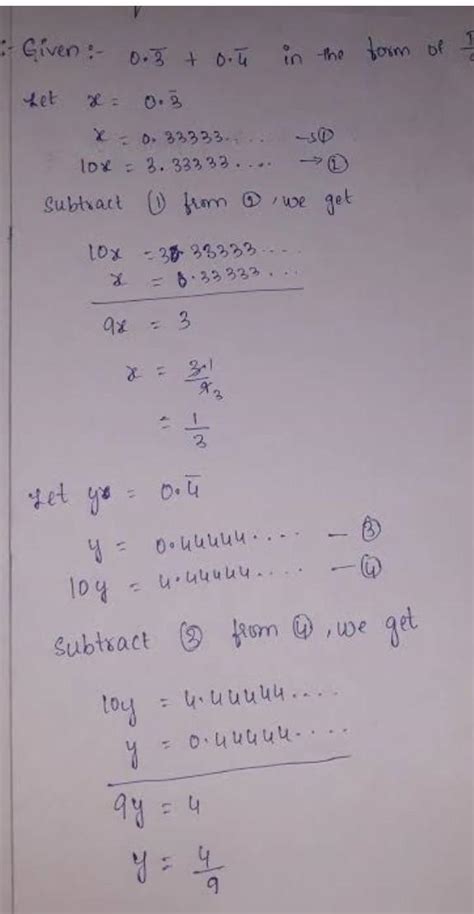 :- Given :- 0.3̅ + 0.4̅ in the form of
Let x = 0.3̅
x = 0.33333.... →①
10x = 3.33333.... →②
Subtract ① from ②, we get
10x = 3.33333....
x = 0.33333...
9x = 3
x = 3 1/9 3
= 1/3
Let y = 0.4̅
y = 0.44444.... — ③
10y = 4.44444.... — ④
Subtract ③ from ④, we get
10y = 4.44444....
y = 0.44444....
9y = 4
y = 4/9